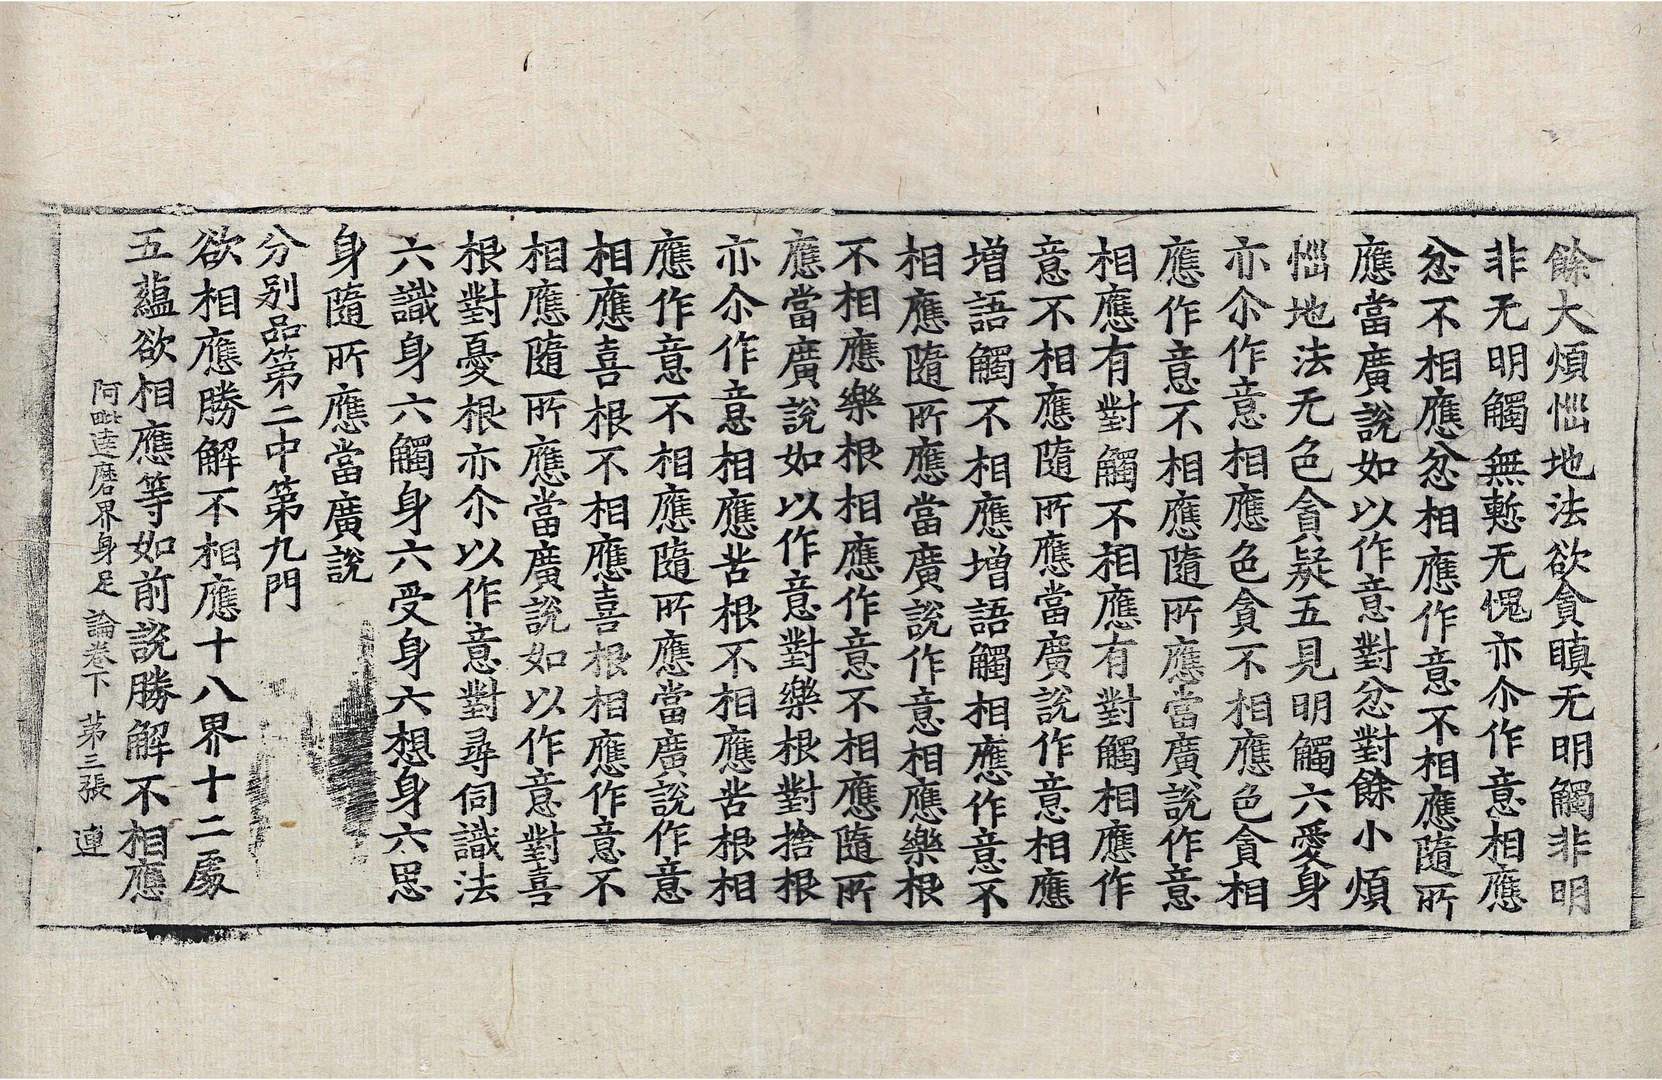 餘大煩惱地法欲貪瞋无明觸非明
非无明觸無慙无愧亦尒作意相應
忿不相應忿相應作意不相應隨所
應當廣說如以作意對忿對餘小煩
惱地法无色貪疑五見明觸六愛身
亦尒作意相應色貪不相應色貪相
應作意不相應隨所應當廣說作意
相應有對觸不相應有對觸相應作
意不相應隨所應當廣說作意相應
增語觸不相應增語觸相應作意不
相應隨所應當廣說作意相應樂根
不相應樂根相應作意不相應隨所
應當廣說如以作意對樂根對捨根
亦尒作意相應苦根不相應苦根相
應作意不相應隨所應當廣說作意
相應喜根不相應喜根相應作意不
相應隨所應當廣說如以作意對喜
根對憂根亦尒以作意對尋伺識法
六識身六觸身六受身六想身六思
身隨所應當廣說
分別品第二中第九門
欲相應勝解不相應十八界十二處
五蘊欲相應等如前說勝解不相應
阿毗達磨界身足論卷下 苐三張 連